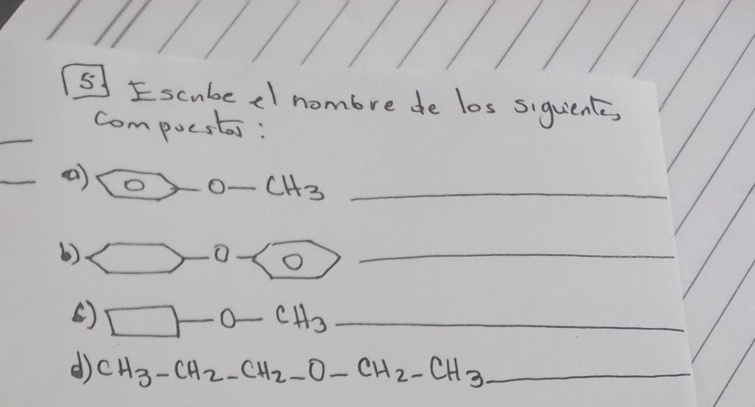 5. Escribe el nombre de los siguientes
compuestos:
a) O -O-CH3
b) -O- O
c) -O-CH3
d) CH3-CH2-CH2-O-CH2-CH3